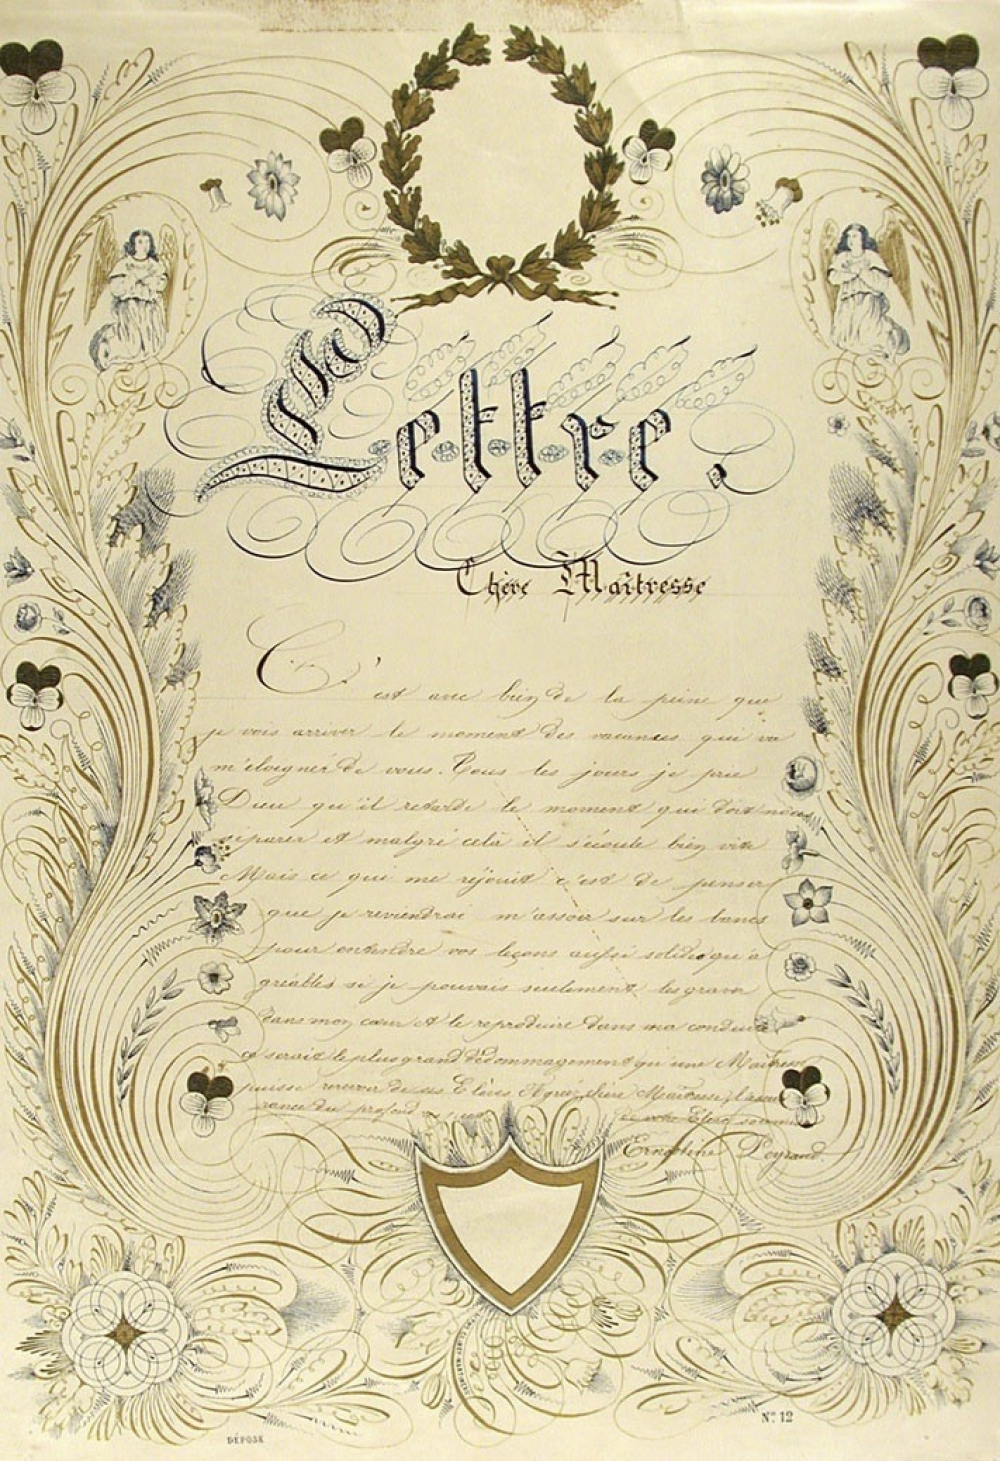 Lettre.
Chère Maîtresse
C'est avec bien de la peine que
je vois arriver le moment des vacances qui va
m'eloigner de vous. Tous les jours je prie
Dieu qu'il retarde le moment qui doit nous
séparer et malgré cela il s'écoule bien vite
Mais ce qui me réjouit c'est de penser
que je reviendrai m'assoir sur les bancs
pour entendre vos leçons aussi solides qu'a
gréables si je pouvais seulement les graver
dans mon cœur et le reproduire dans ma conduite
ce serait le plus grand dédommagement qu'une Maîtresse
puisse recevoir de ses Elèves Agréez chère Maîtresse l'assu
rance du profond
de votre Elève soumise
Ernestine Peyraud
DÉPOSÉ
No. 12